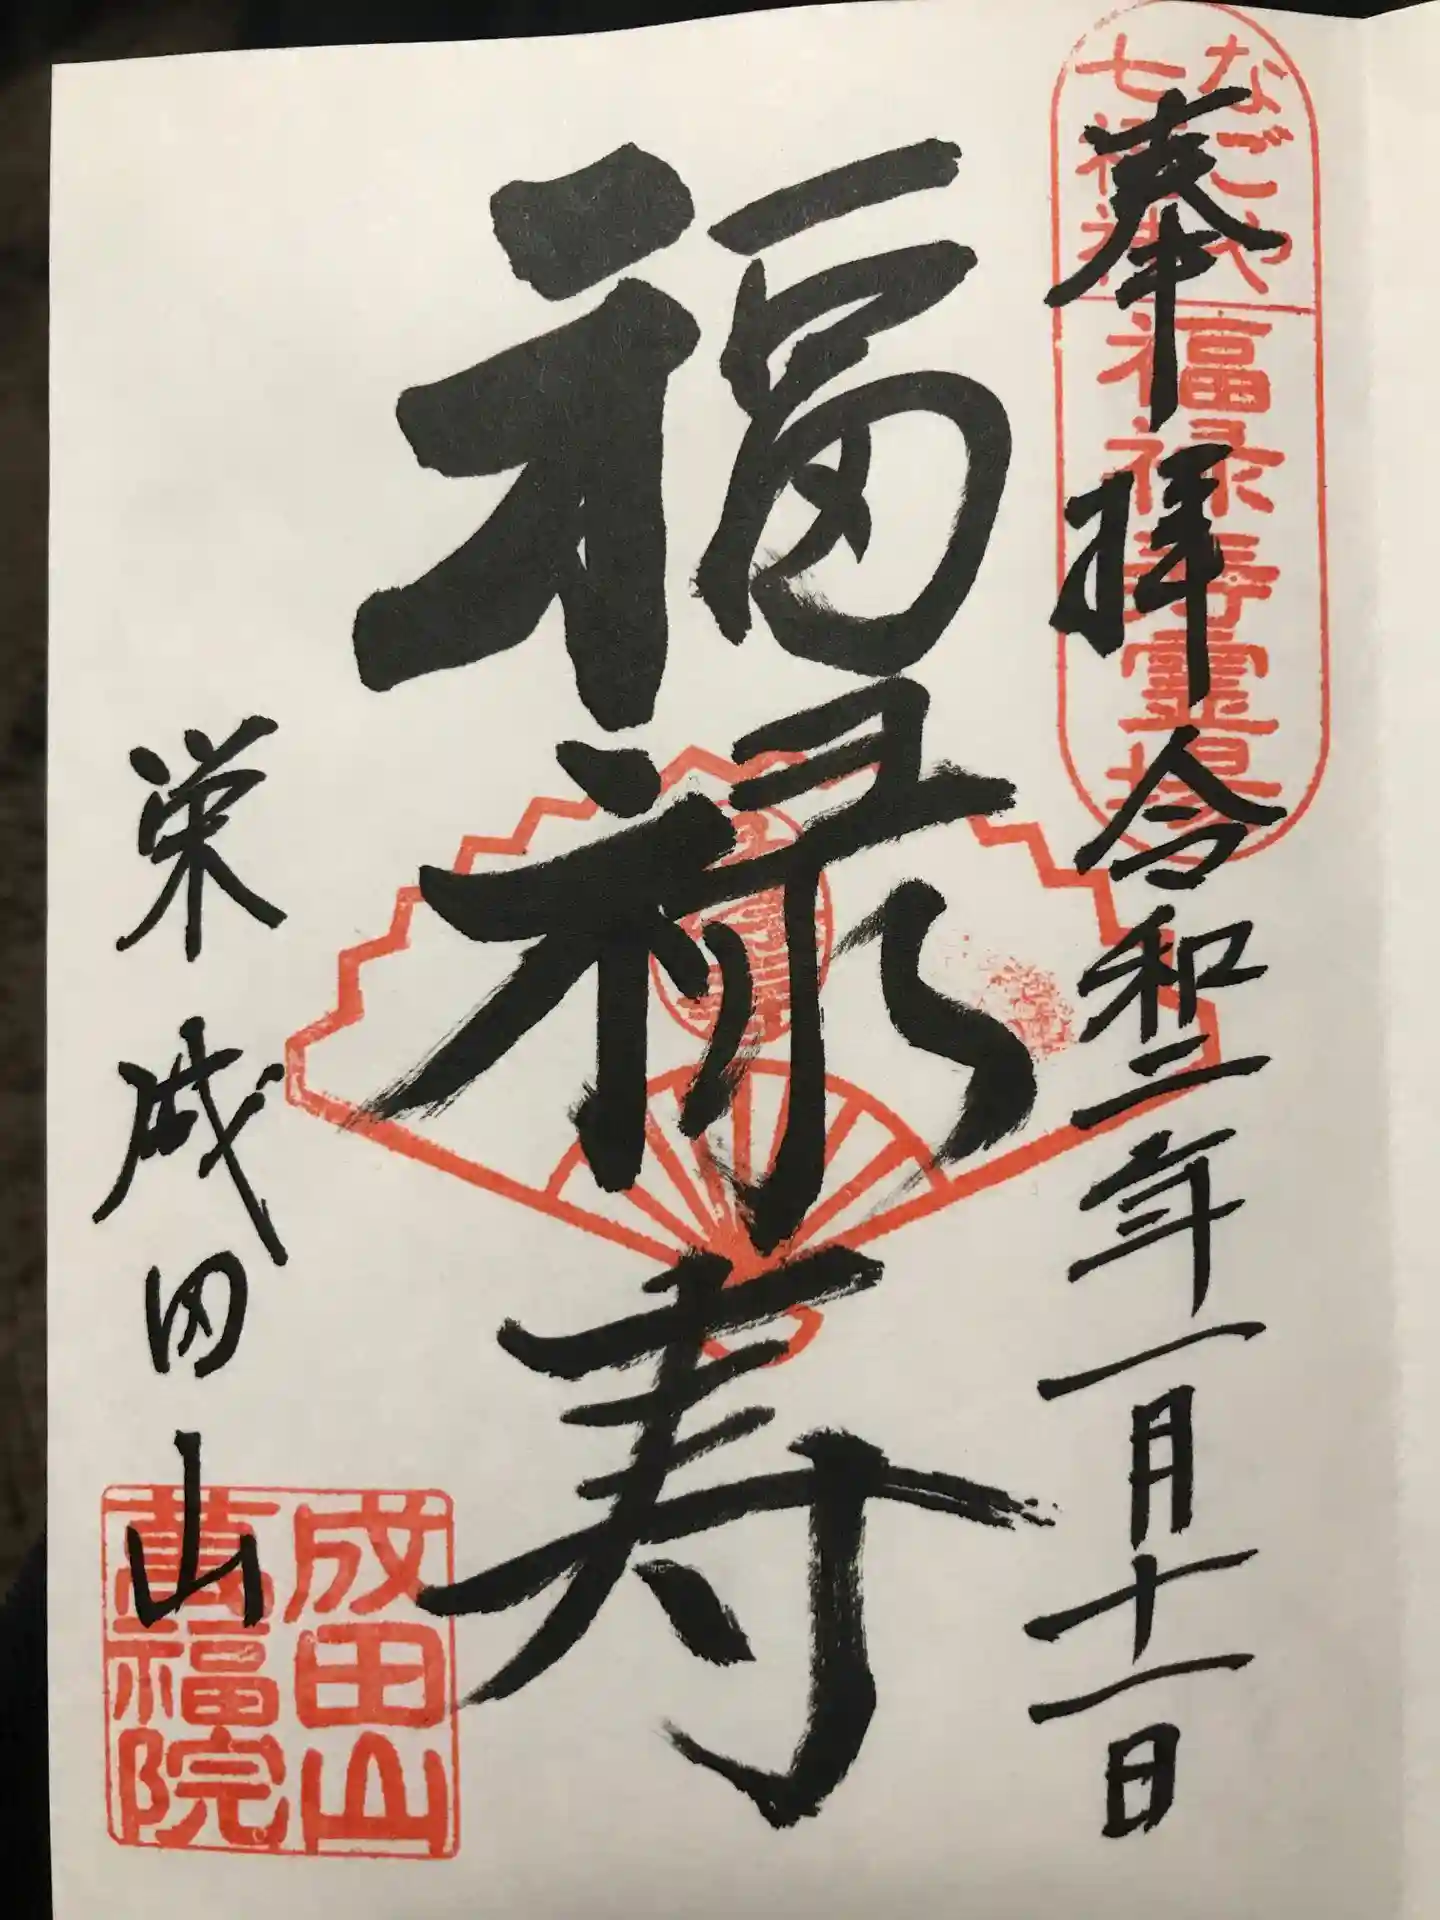 なごや
七福神
福禄寿霊場
奉拝 令和二年一月十一日
福禄寿
栄 成田山
成田山
萬福院